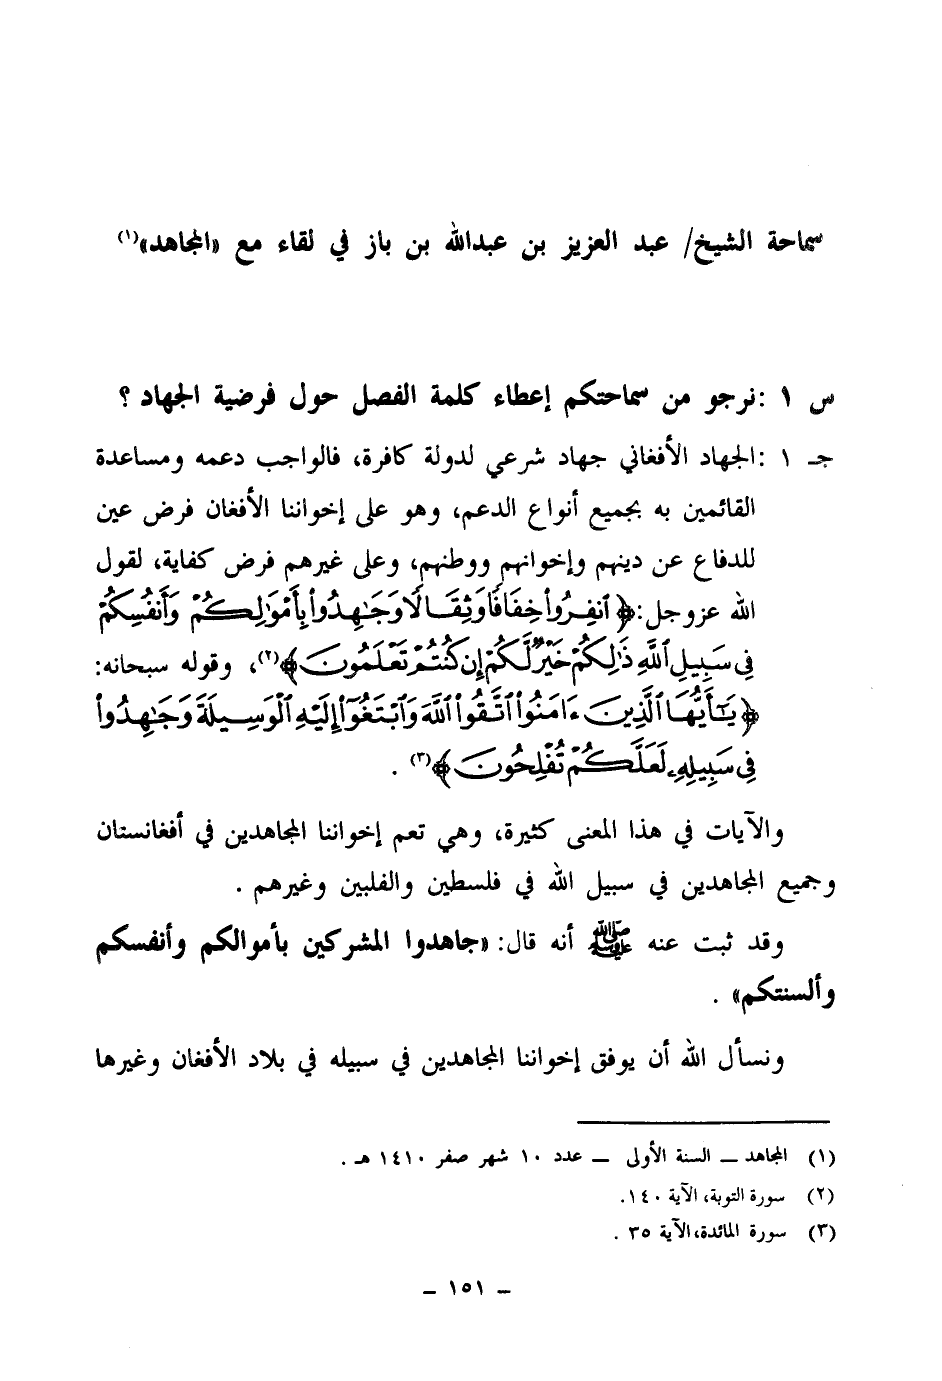 سماحة الشيخ/ عبد العزيز بن عبدالله بن باز في لقاء مع «المجاهد»(١)
س ١ :نرجو من سماحتكم إعطاء كلمة الفصل حول فرضية الجهاد ؟
جـ ١ :الجهاد الأفغاني جهاد شرعي لدولة كافرة، فالواجب دعمه ومساعدة
القائمين به بجميع أنواع الدعم، وهو على إخواننا الأفغان فرض عين
للدفاع عن دينهم وإخوانهم ووطنهم، وعلى غيرهم فرض كفاية، لقول
الله عزوجل:﴿ ٱنفِرُوا۟ خِفَافًا وَثِقَالًا وَجَٰهِدُوا۟ بِأَمْوَٰلِكُمْ وَأَنفُسِكُمْ
فِى سَبِيلِ ٱللَّهِ ذَٰلِكُمْ خَيْرٌ لَّكُمْ إِن كُنتُمْ تَعْلَمُونَ﴾(٢)، وقوله سبحانه:
﴿يَٰٓأَيُّهَا ٱلَّذِينَ ءَامَنُوا۟ ٱتَّقُوا۟ ٱللَّهَ وَٱبْتَغُوٓا۟ إِلَيْهِ ٱلْوَسِيلَةَ وَجَٰهِدُوا۟
فِى سَبِيلِهِۦ لَعَلَّكُمْ تُفْلِحُونَ﴾(٣) .
والآيات في هذا المعنى كثيرة، وهي تعم إخواننا المجاهدين في أفغانستان
وجميع المجاهدين في سبيل الله في فلسطين والفلبين وغيرهم .
وقد ثبت عنه ﷺ أنه قال: «جاهدوا المشركين بأموالكم وأنفسكم
وألسنتكم» .
ونسأل الله أن يوفق إخواننا المجاهدين في سبيله في بلاد الأفغان وغيرها
(١) المجاهد ــ السنة الأولى ــ عدد ١٠ شهر صفر ١٤١٠ هـ .
(٢) سورة التوبة، الآية ١٤٠.
(٣) سورة المائدة،الآية ٣٥ .
– ١٥١ –